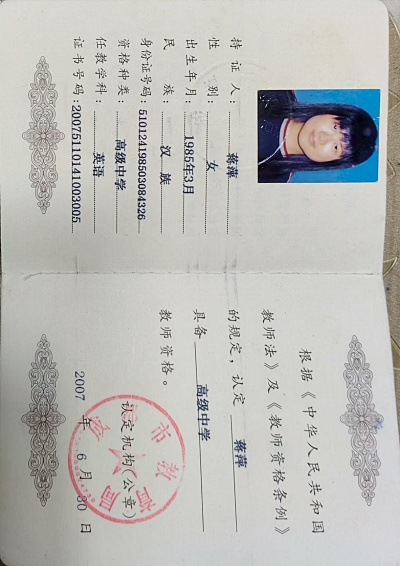 持 证 人： 蒋萍
性 别： 女
出生年月： 1985年3月
民 族： 汉 族
身份证号码：510124198503084326
资格种类： 高级中学
任教学科： 英语
证书号码：20075110141003005
根据《中华人民共和国
教师法》及《教师资格条例》
的规定，认定 蒋萍
具备 高级中学
教师资格。
认定机构（公章）
2007 年 6 月 30 日
市教育局